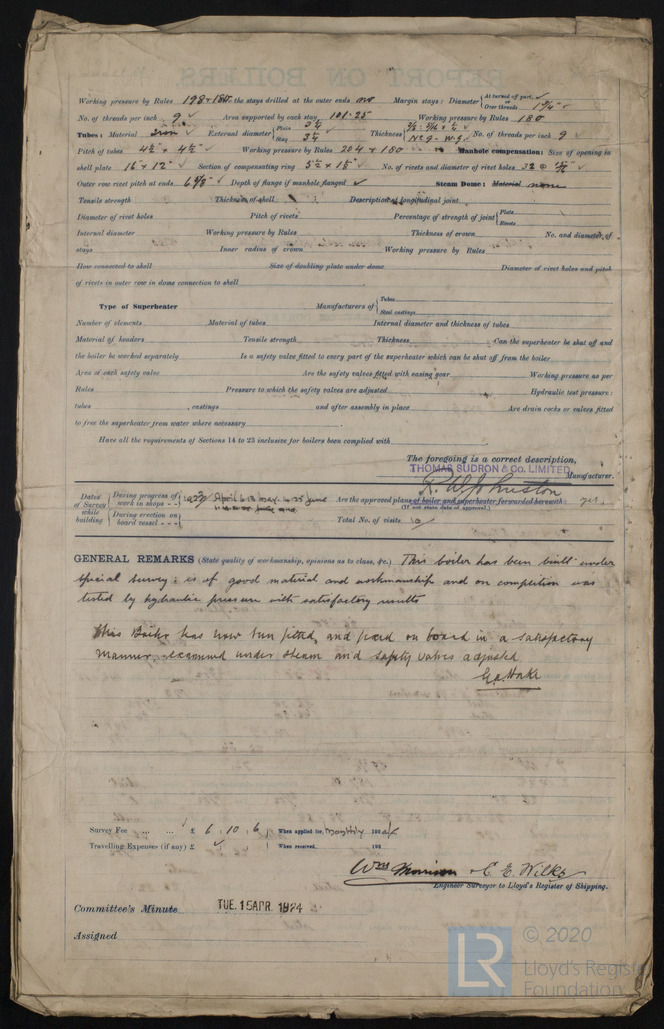 Working pressure by Rules 198 & 180 the stays drilled at the outer ends no Margin stays: Diameter { At turned off part, or Over threads 1 3/4" ✓
No. of threads per inch 9 ✓ Area supported by each stay 101.25 Working pressure by Rules 180
Tubes: Material Iron ✓ External diameter { Plain 3 1/4 Stay 3 1/4 Thickness { No. of threads per inch 9 ✓
Pitch of tubes 4 1/2 × 4 1/2 ✓ Working pressure by Rules 204 & 180 Manhole compensation: Size of opening in
shell plate 16 × 12 ✓ Section of compensating ring 5 1/2 × 1 5/8 ✓ No. of rivets and diameter of rivet holes 32 @ ✓
Outer row rivet pitch at ends 6 7/8 ✓ Depth of flange if manhole flanged ✓ Steam Dome: Material none
Tensile strength Thickness of shell Description of longitudinal joint
Diameter of rivet holes Pitch of rivets Percentage of strength of joint { Plate Rivets
Internal diameter Working pressure by Rules Thickness of crown No. and diameter of
stays Inner radius of crown Working pressure by Rules
How connected to shell Size of doubling plate under dome Diameter of rivet holes and pitch
of rivets in outer row in dome connection to shell
Type of Superheater Manufacturers of { Tubes Steel castings
Number of elements Material of tubes Internal diameter and thickness of tubes
Material of headers Tensile strength Thickness Can the superheater be shut off and
the boiler be worked separately Is a safety valve fitted to every part of the superheater which can be shut off from the boiler
Area of each safety valve Are the safety valves fitted with easing gear Working pressure as per
Rules Pressure to which the safety valves are adjusted Hydraulic test pressure:
tubes , castings and after assembly in place Are drain cocks or valves fitted
to free the superheater from water where necessary
Have all the requirements of Sections 14 to 23 inclusive for boilers been complied with
The foregoing is a correct description,
THOMAS SUDRON & Co. LIMITED, Manufacturer.
R. W. Johnston
Dates of Survey while building { During progress of work in shops - - { April May June
Are the approved plans of boiler and superheater forwarded herewith yes.
(If not state date of approval.)
{ During erection on board vessel - - - { Total No. of visits 10
GENERAL REMARKS (State quality of workmanship, opinions as to class, &c.) This boiler has been built under
Special Survey: is of good material and workmanship and on completion was
tested by hydraulic pressure with satisfactory results
This Boiler has now been fitted and fixed on board in a satisfactory
manner, examined under steam and safety valves adjusted
Survey Fee ... ... £ 6 : 10 : 6 When applied for, Monthly 192
Travelling Expenses (if any) £ ✓ : : When received, 192
Wm Morrison & E. E. Wilks
Engineer Surveyor to Lloyd's Register of Shipping.
Committee's Minute TUE. 15 APR. 1924
Assigned
LR © 2020
Lloyd's Register
Foundation